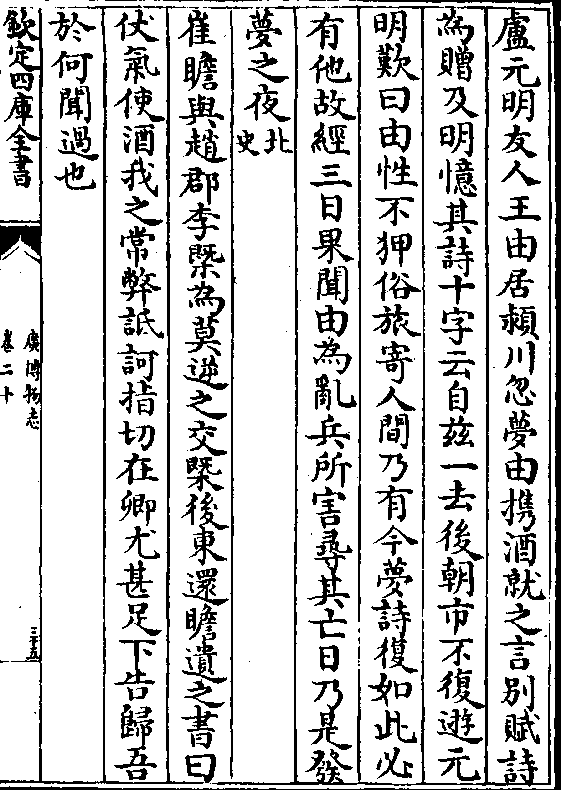 盧元明友人王由居潁川忽夢由携酒就之言別賦詩
為贈及明憶其詩十字云自兹一去後朝市不復遊元
明歎曰由性不狎俗旅寄人間乃有今夢詩復如此必
有他故經三日果聞由為亂兵所害尋其亡日乃是發
夢之夜北史
崔瞻與趙郡李槩為莫逆之交槩後東還瞻遺之書曰
仗氣使酒我之常弊詆訶指切在卿尤甚足下告歸吾
於何聞過也
欽定四庫全書
廣博物志
卷二十
三十五